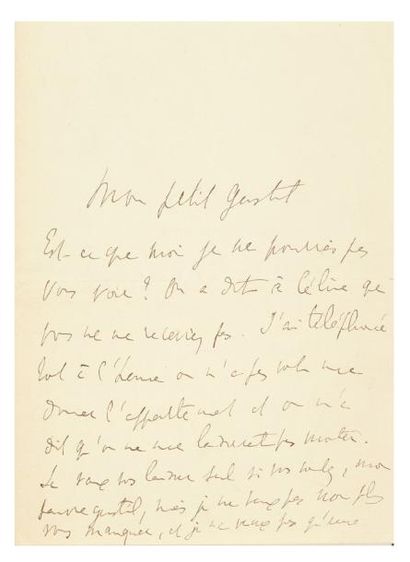 Mon petit
Est-ce que moi je ne pourrais pas
vous voir ? On a dit à Céline que
vous ne me receviez pas. J'ai téléphoné
tout à l'heure on n'a pas voulu me
donner l'appartement et on m'a
dit qu'on ne me laisserait pas monter.
Je veux vous laisser seul si vous voulez, mon
pauvre, mais je ne veux pas non plus
vous manquer, et je ne veux pas qu'une